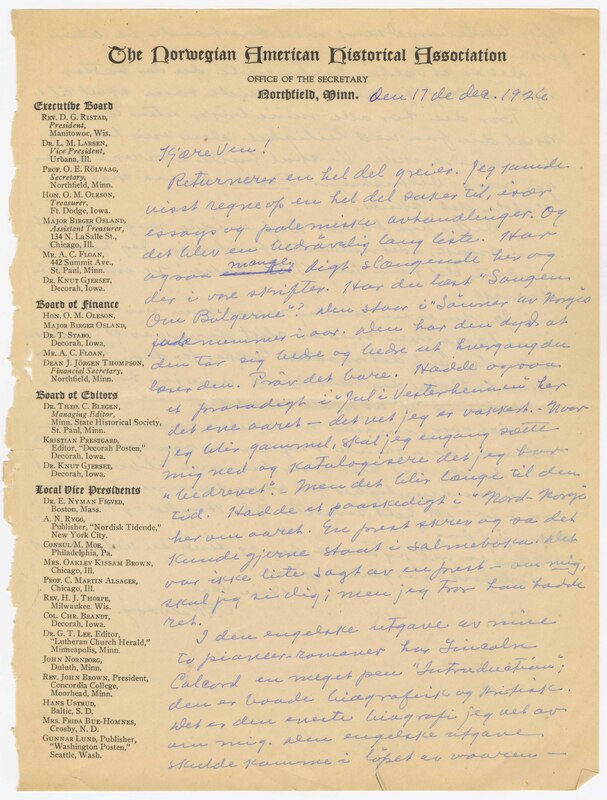 The Norwegian American Historical Association
OFFICE OF THE SECRETARY
Northfield, Minn. den 17 de dec. 1926
Executive Board
REV. D. G. RISTAD,
President,
Manitowoc, Wis.
DR. L. M. LARSEN,
Vice President,
Urbana, Ill.
PROF. O. E. RÖLVAAG,
Secretary,
Northfield, Minn.
HON. O. M. OLESON,
Treasurer,
Ft. Dodge, Iowa.
MAJOR BIRGER OSLAND,
Assistant Treasurer,
134 N. LaSalle St.,
Chicago, Ill.
MR. A. C. FLOAN,
442 Summit Ave.,
St. Paul, Minn.
DR. KNUT GJERSET,
Decorah, Iowa.
Board of Finance
HON. O. M. OLESON,
MAJOR BIRGER OSLAND,
DR. T. STABO,
Decorah, Iowa.
MR. A. C. FLOAN,
DEAN J. JÖRGEN THOMPSON,
Financial Secretary,
Northfield, Minn.
Board of Editors
DR. THEO. C. BLEGEN,
Managing Editor,
Minn. State Historical Society,
St. Paul, Minn.
KRISTIAN PRESTGARD,
Editor, "Decorah Posten,"
Decorah, Iowa.
DR. KNUT GJERSET,
Decorah, Iowa.
Local Vice Presidents
DR. E. NYMAN FIGVED,
Boston, Mass.
A. N. RYGG,
Publisher, "Nordisk Tidende,"
New York City.
CONSUL M. MOE,
Philadelphia, Pa.
MRS. OAKLEY KISSAM BROWN,
Chicago, Ill.
PROF. C. MARTIN ALSAGER,
Chicago, Ill.
REV. H. J. THORPE,
Milwaukee, Wis.
COL. CHR. BRANDT,
Decorah, Iowa.
DR. G. T. LEE, Editor,
"Lutheran Church Herald,"
Minneapolis, Minn.
JOHN NORNBORG,
Duluth, Minn.
REV. JOHN BROWN, President,
Concordia College,
Moorhead, Minn.
HANS USTRUD,
Baltic, S. D.
MRS. FRIDA BUE-HOMNES,
Crosby, N. D.
GUNNAR LUND, Publisher,
"Washington Posten,"
Seattle, Wash.
Kjære Ven!
Returnerer en hel del greier. Jeg kunde
visst regne op en hel del saker til, især
essays og polemiske avhandlinger. Og
det blev en bedrøvelig lang liste. Har
ogsaa mange digt slængende her og
der i vore skrifter. Har du læst "Sangen
Om Bölgerne"? Den staar i "Sönner av Norges
julenummer i aar. Den har den dyd at
den tar sig bedre og bedre ut hvergang du
læser den. Pröv det bare. Hadde ogsaa
et prosadigt i "Jul i Vesterheimen" her
det ene aaret – det vet jeg er vakkert. – Naar
jeg blir gammel, skal jeg engang sætte
mig ned og katalogisere det jeg har
"bedrevet". – Men det blir længe til den
tid. Hadde et paaskedigt i "Nord-Norge"
her om aaret. En prest skrev og sa det
kunde gjerne staat i salmeboka. Det
var ikke lite sagt av en prest – om mig,
skal jeg si dig; men jeg tror han hadde
ret.
I den engelske utgave av mine
to pioneer-romaner har Lincoln
Colcord en meget pen "Introduction";
den er baade biografisk og kritisk.
Det er den eneste biografi jeg vet av
om mig. Den engelske utgave
skulde komme i löpet av vaaren –